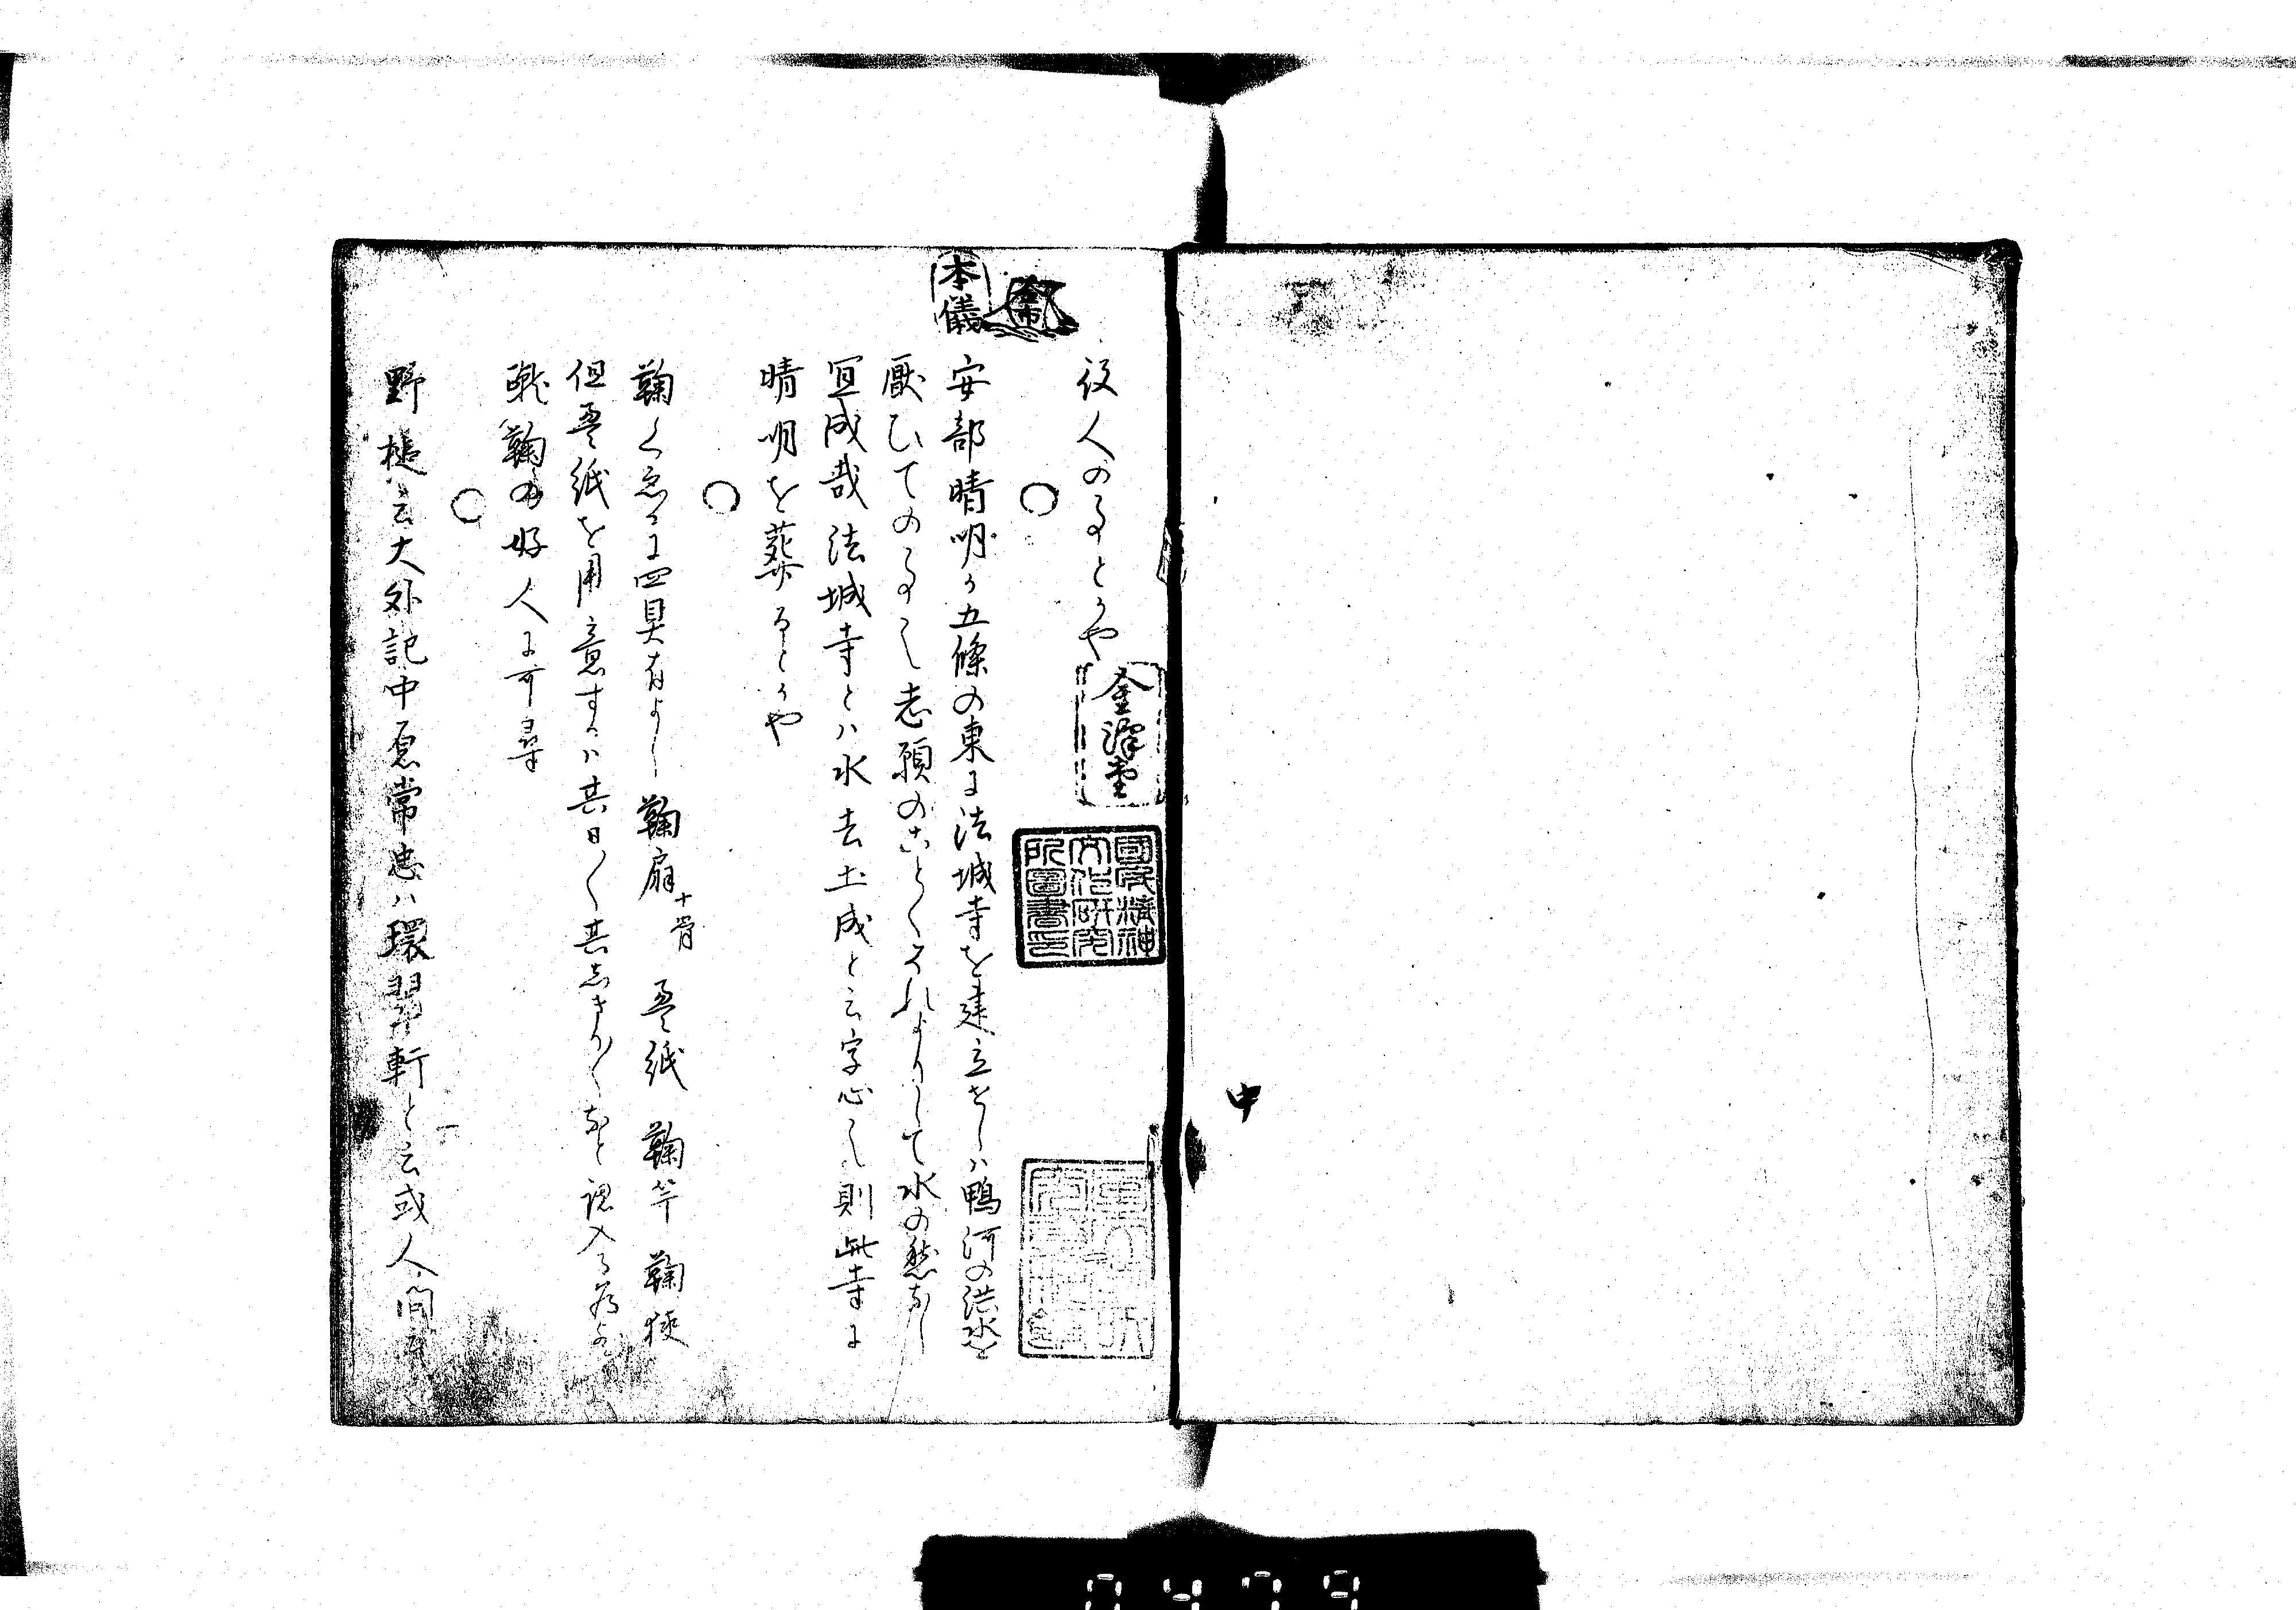 中
役人の事とかや
金澤堂
國民精神文化研究所圖書之印
本儀
○
安部晴明か五條の東に法城寺を建立せしハ鴨河の洪水を
厭ひての事也志願のことくそれよりして水の愁なし
宜成哉法城寺とハ水去土成と云字心也則此寺に
晴明を葬るとかや
○
鞠くゑに四具有よし 鞠扇十骨 疊紙 鞠竿 鞠挾
但疊紙を用意するハ其日〱其しき
認入る
鞠の好人に可尋
○
野槌云大外記中原常忠ハ環翠軒と云或人問
0479